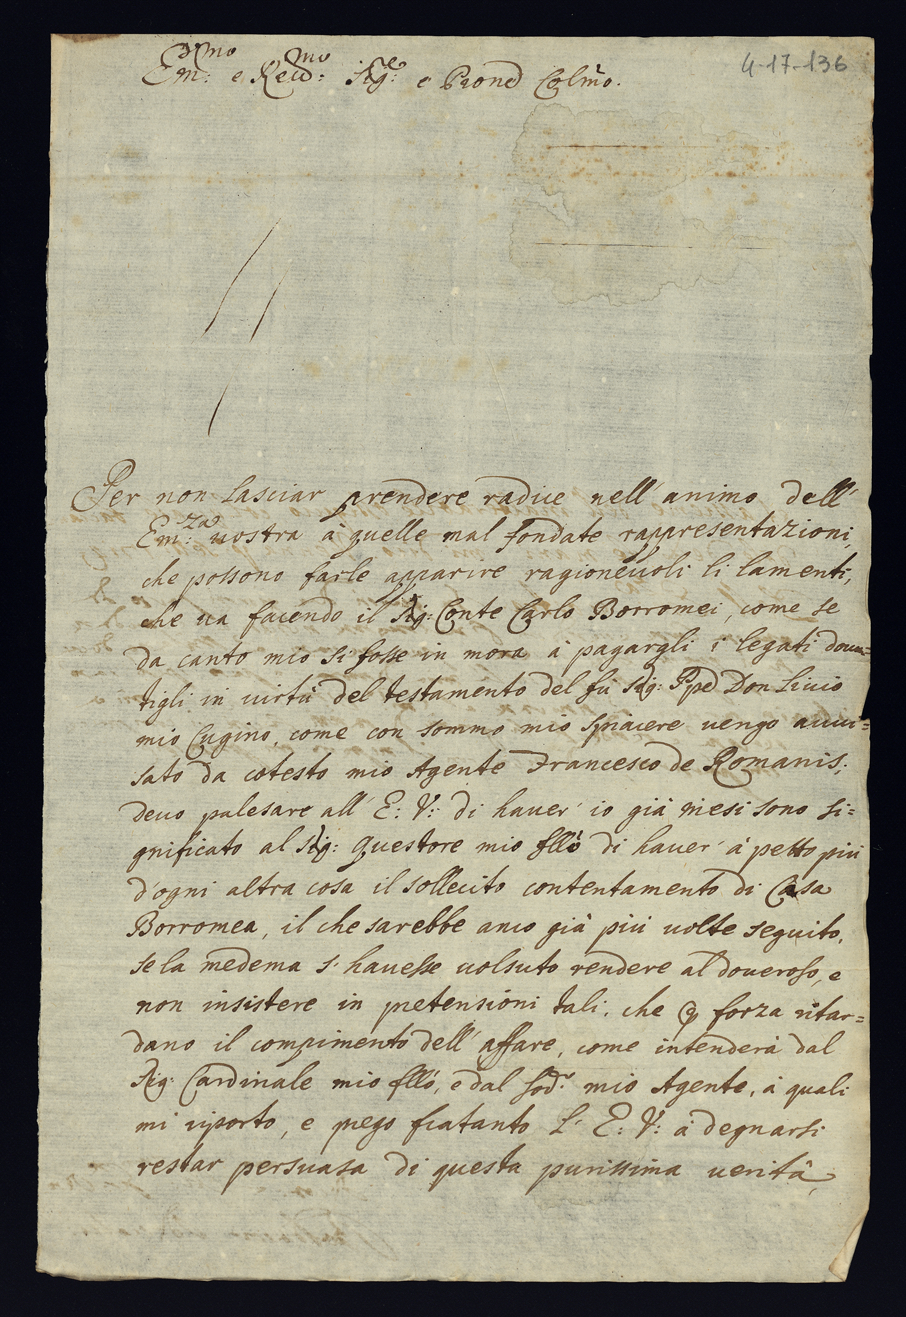 Em:mo e Reu:mo Sig:re e Prone Colmo.
4-17-136
Per non lasciar prendere radice nell' animo dell'
Em:za uostra à quelle mal fondate rappresentazioni,
che possono farle apparire ragioneuoli li lamenti,
che ua facendo il Sig: Conte Carlo Borromei, come se
da canto mio si fosse in mora à pagargli i legati douu=
tigli in uirtù del testamento del fù Sig: Ppe Don Liuio
mio Cugino, come con sommo mio spiacere uengo auui=
sato da cotesto mio Agente Francesco de Romanis;
deuo palesare all' E: V: di hauer' io già mesi sono si=
gnificato al Sig: Questore mio fllo di hauer' à petto più
d'ogni altra cosa il sollecito contentamento di Casa
Borromea, il che sarebbe anco già più uolte seguito,
se la medema s' hauesse uolsuto rendere al doueroso, e
non insistere in pretensioni tali, che p forza ritar=
dano il compimento dell' affare, come intenderà dal
Sig: Cardinale mio fllo, e dal sod:o mio Agente, à quali
mi riporto, e prego fratanto L' E: V: à degnarsi
restar persuasa di questa purissima uerità,